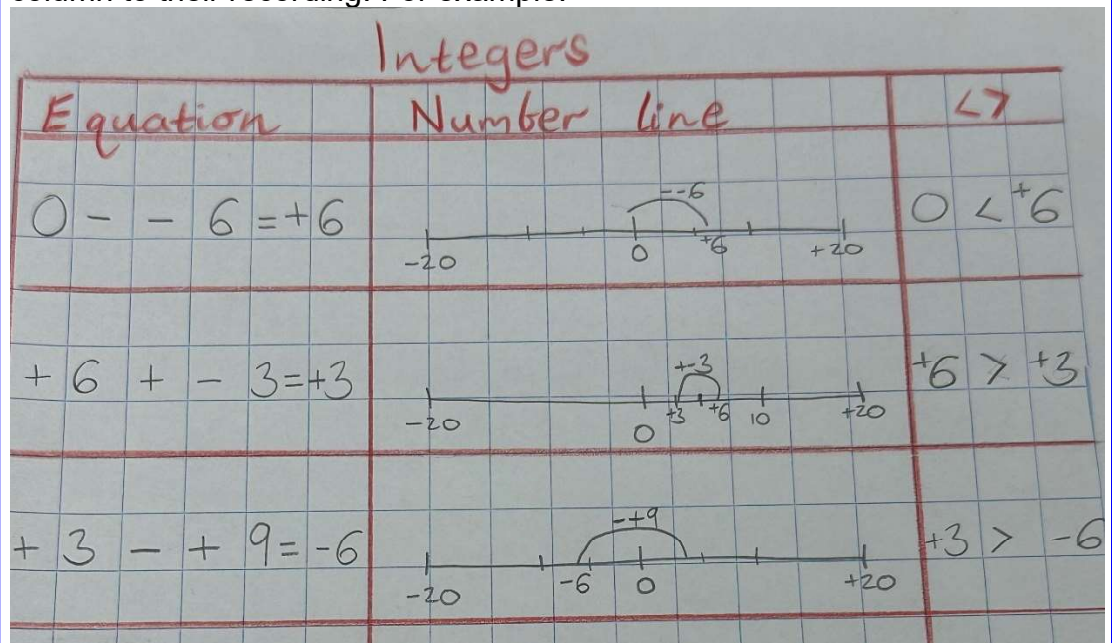 Integers
Equation Number line <>
0 - - 6 = +6
--6
-20 0 +6 +20
0 < +6
+ 6 + - 3 = +3
+-3
-20 0 +3 +6 10 +20
+6 > +3
+ 3 - + 9 = -6
-+9
-20 -6 0 +20
+3 > -6